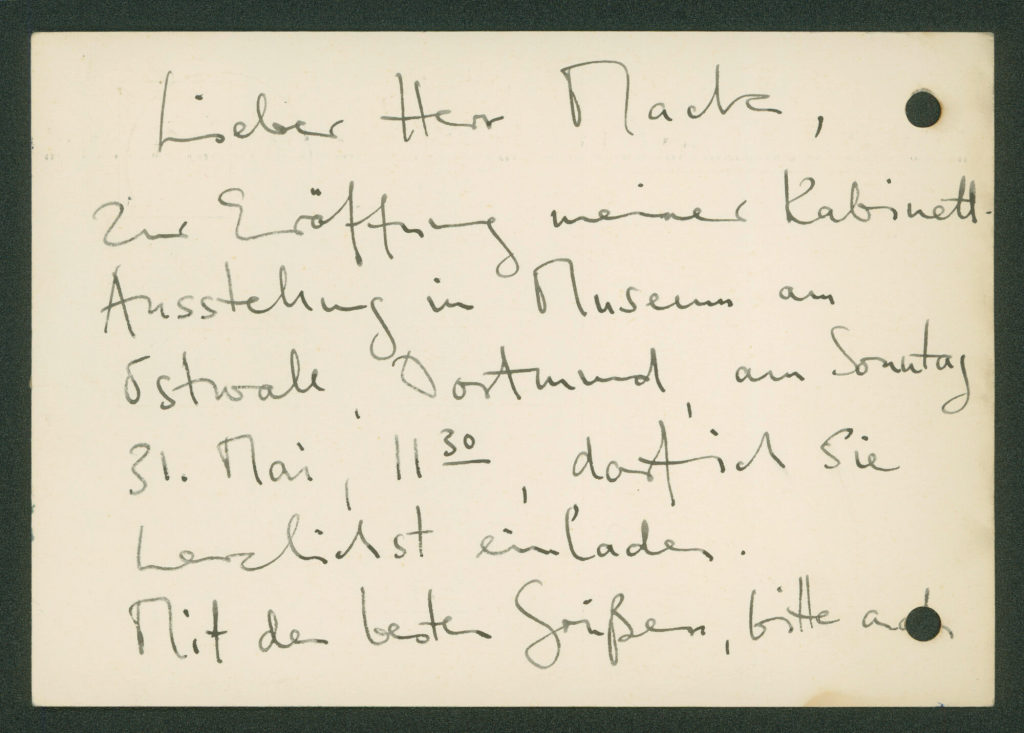 Lieber Herr Mack,
zur Eröffnung meiner Kabinett-
Ausstellung im Museum am
Ostwall, Dortmund, am Sonntag
31. Mai, 11 30, darf ich Sie
herzlichst einladen.
Mit den besten Grüßen, bitte auch